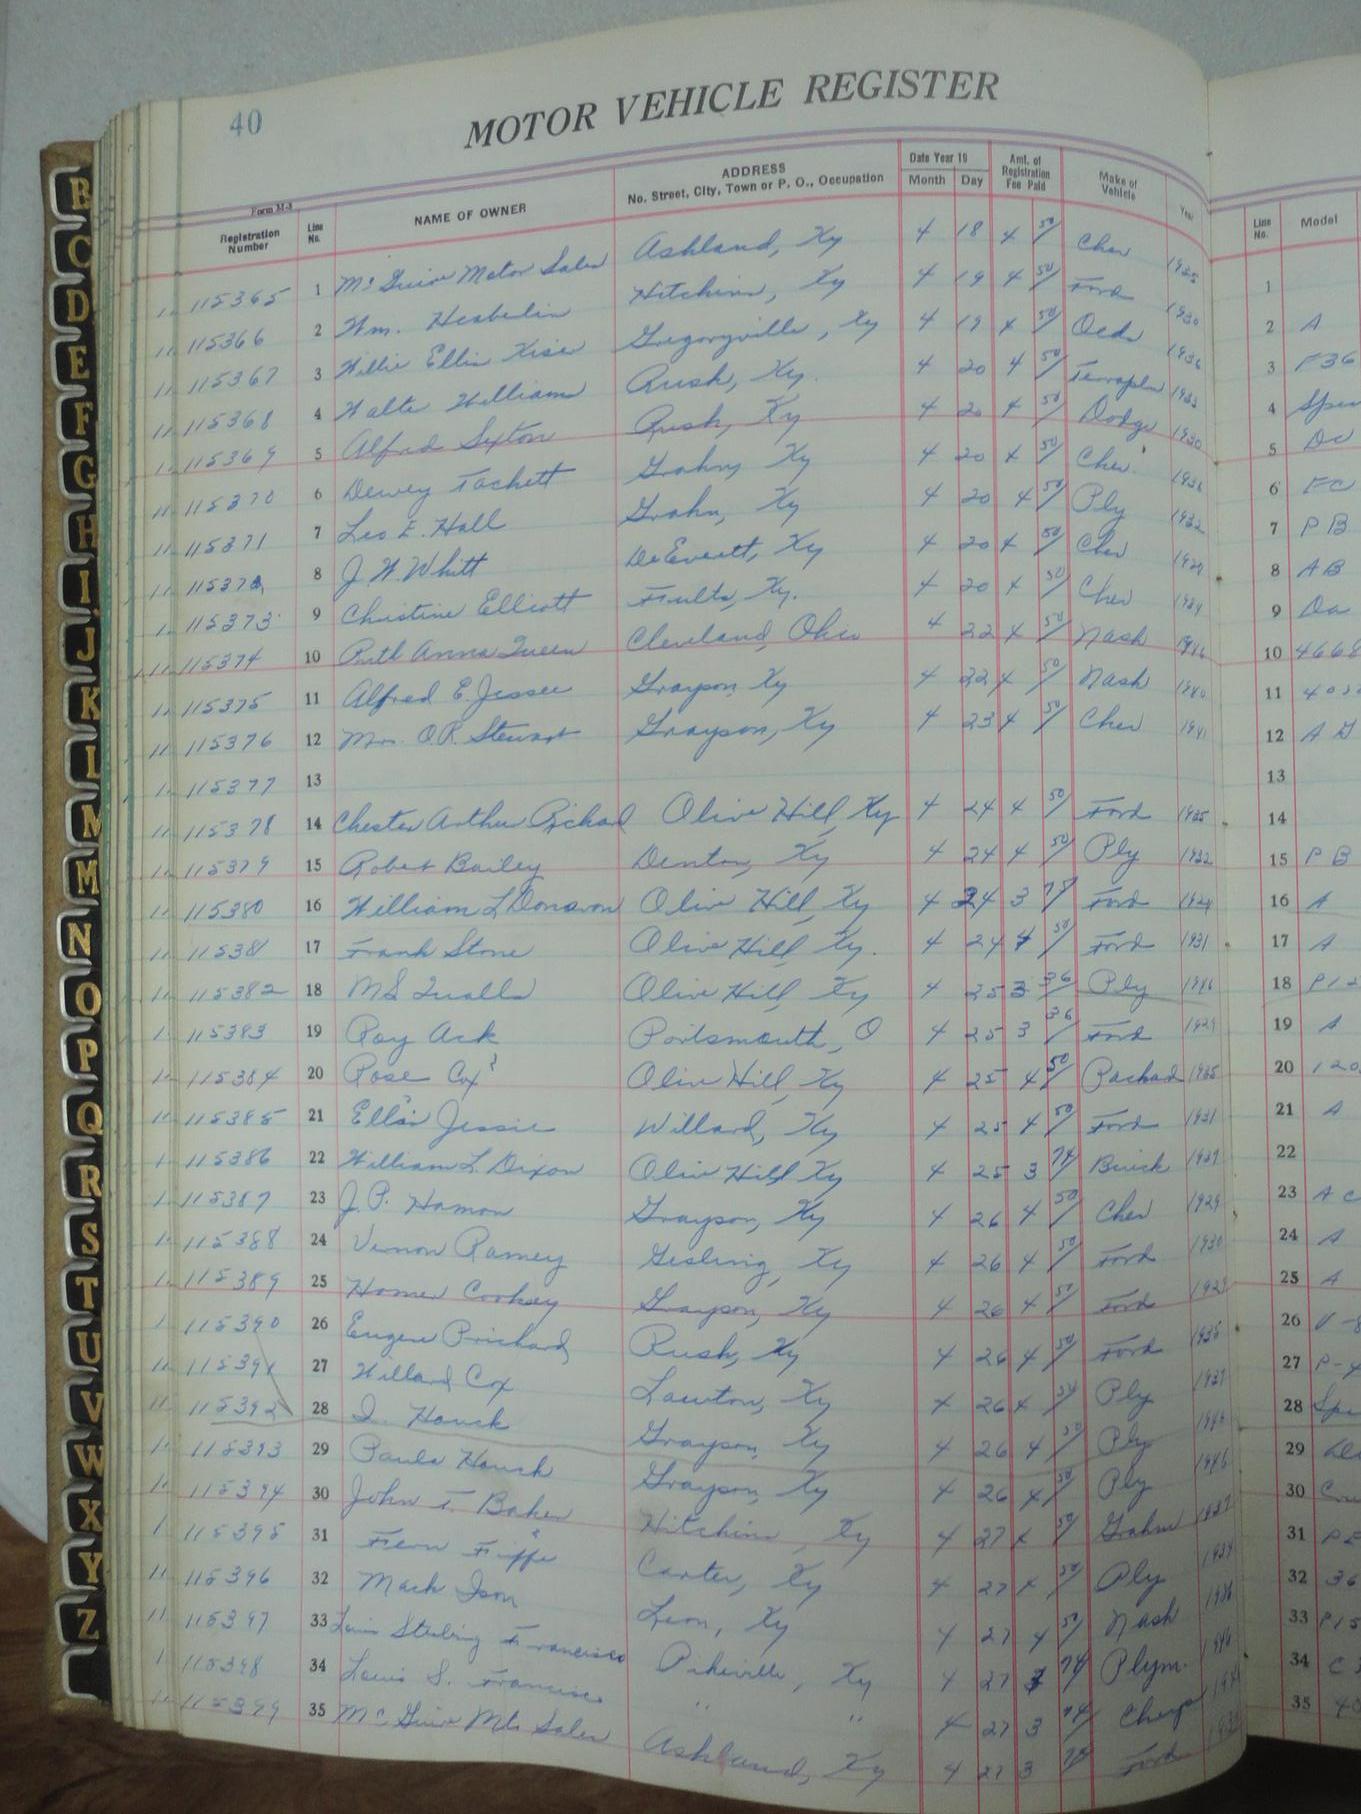 40
MOTOR VEHICLE REGISTER
Form M-3
Registration Number Line No. NAME OF OWNER ADDRESS No. Street, City, Town or P. O., Occupation Date Year 19 Month Day Amt. of Registration Fee Paid Make of Vehicle Year Line No. Model
115365 1 Mc Guire Motor Sales Ashland, Ky 4 18 4 50 Chev 1935 1
115366 2 Wm. Hesbelin Hitchins, Ky 4 19 4 50 Ford 1930 2 A
115367 3 Willie Ellis Kiser Gregoryville, Ky 4 19 4 50 Olds 1936 3 F36
115368 4 Walter Williams Rush, Ky. 4 20 4 50 Terraplane 1933 4
115369 5 Alfred Sexton Rush, Ky 4 20 4 50 Dodge 1930 5 DC
115370 6 Dewey Tackett Grahn, Ky 4 20 4 50 Chev. 1936 6 FC
115371 7 Leo E. Hall Grahn, Ky 4 20 4 50 Ply 1932 7 PB
8 J. W. Whitt DeEverett, Ky 4 20 4 50 Chev 1929 8 AB
115373 9 Christine Elliott Fults, Ky. 4 20 4 50 Chev 1934 9 Da
115374 10 Ruth Anna Queen Cleveland, Ohio 4 22 4 50 Nash 1946 10 4668
115375 11 Alfred E. Jessee Grayson, Ky 4 22 4 50 Nash 1940 11
115376 12 Mrs. O.R. Stewart Grayson, Ky 4 23 4 50 Chev 1941 12 AG
115377 13 13
115378 14 Chester Arthur Richard Olive Hill, Ky 4 24 4 50 Ford 1935 14
115379 15 Robert Bailey Denton, Ky 4 24 4 50 Ply 1932 15 PB
115380 16 William L Donavon Olive Hill, Ky 4 24 3 75 Ford 1929 16 A
11538 17 Frank Stone Olive Hill, Ky. 4 24 4 50 Ford 1931 17 A
115382 18 MS Qualls Olive Hill, Ky 4 25 3 36 Ply 1946 18 P12
115383 19 Roy Ack Portsmouth, O 4 25 3 36 Ford 1929 19 A
115384 20 Rose Cox Olive Hill, Ky 4 25 4 50 Packard 1935 20 120
115385 21 Ellis Jessie Willard, Ky 4 25 4 50 Ford 1931 21 A
115386 22 William L. Dixon Olive Hill Ky 4 25 3 74 Buick 1937 22
115387 23 J. P. Hamon Grayson, Ky 4 26 4 50 Chev 1929 23 AC
115388 24 Vernon Ramey Gesling, Ky 4 26 4 50 Ford 1930 24 A
115389 25 Homer Cooksey Grayson, Ky 4 26 4 50 Ford 1929 25 A
115390 26 Eugene Prichard Rush, Ky 4 26 4 50 Ford 1935 26 V-8
115391 27 Willard Cox Lawton, Ky 4 26 4 50 Ply 1937 27 P-4
115392 28 I. Houck Grayson, Ky 4 26 4 50 Ply 28
115393 29 Paula Houck Grayson, Ky 4 26 4 50 Ply 1946 29
115394 30 John T. Baker Hitchins, Ky 4 27 4 50 Graham 1937 30
115395 31 Fern Fipps Carter, Ky 4 27 4 50 Ply 1934 31 PE
115396 32 Mack Ison Leon, Ky 4 27 4 50 Nash 1936 32 36
115397 33 Louis Sterling Francisco Pikeville, Ky 4 27 3 74 Plym. 1946 33 P15
115398 34 Louis S. Francisco " " 4 27 3 74 34
115399 35 Mc Guire Mtr Sales Ashland, Ky 4 27 3 75 Ford 35
B
C
D
E
F
G
H
I
J
K
L
M
M
N
O
P
Q
R
S
T
U
V
W
X
Y
Z